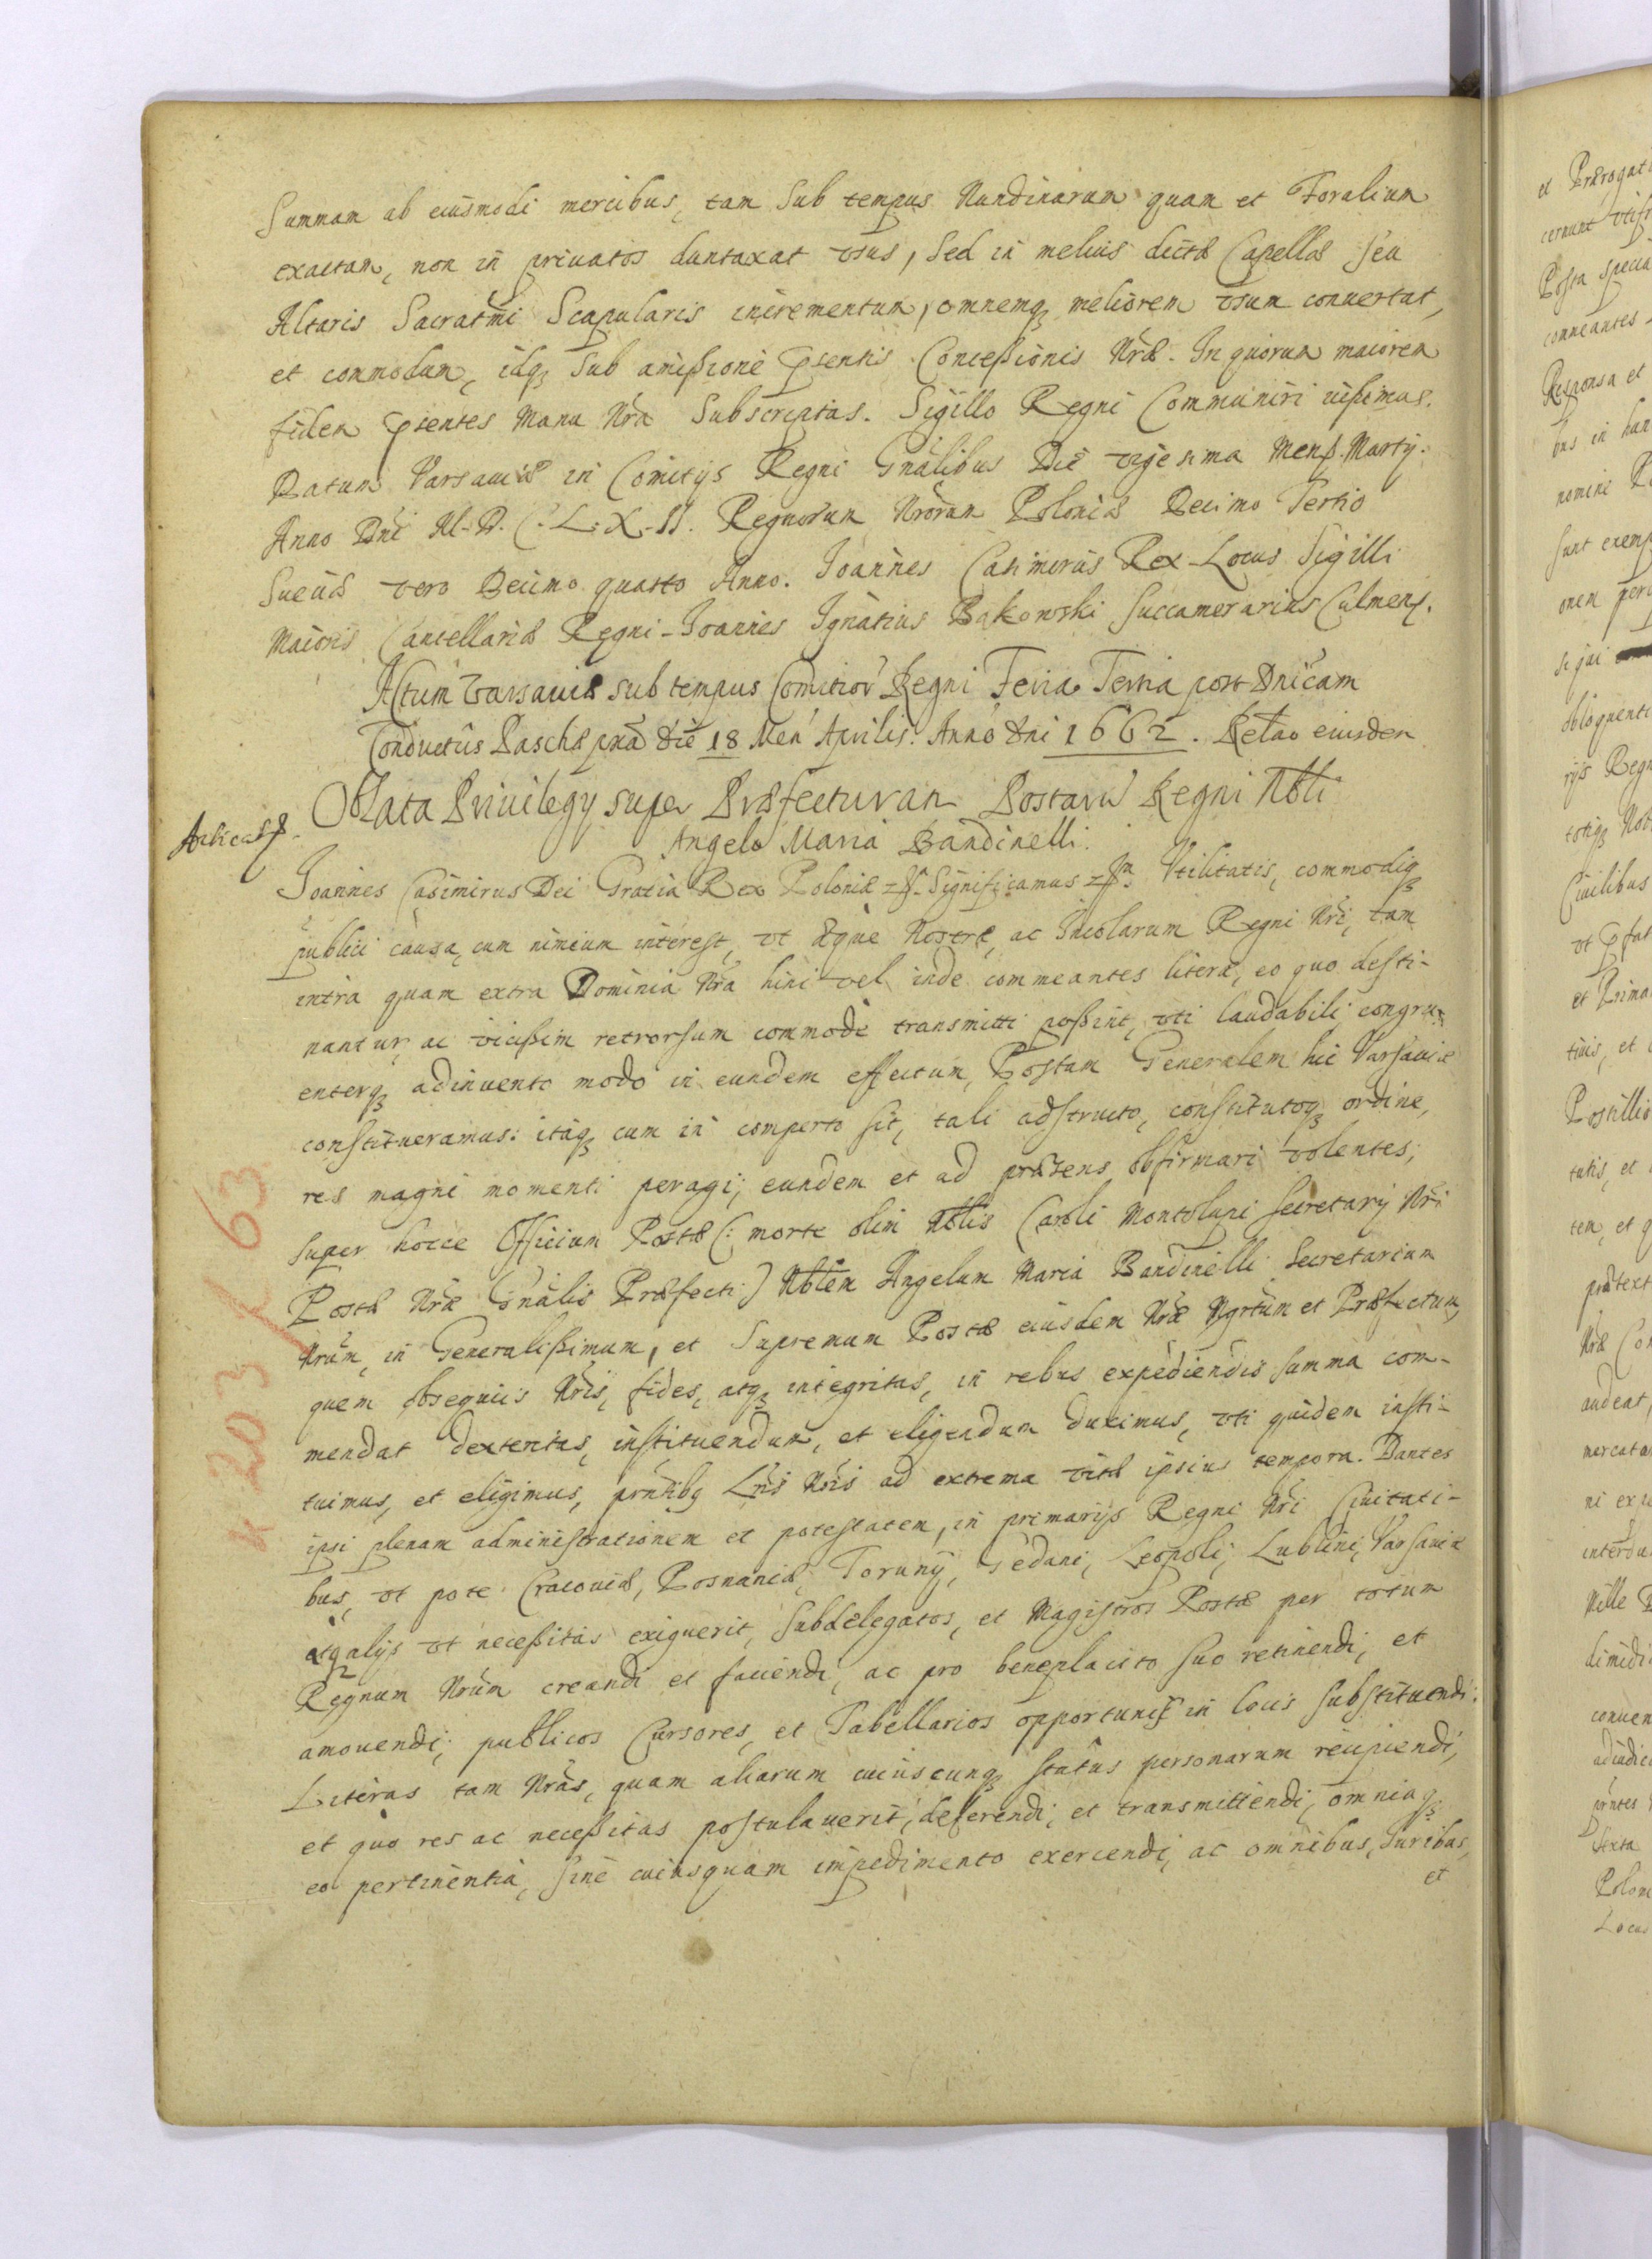 Summam ab eiusmodi mercibus, tam sub tempus Nundinarum quam et Foralium
exactam, non in privatos duntaxat vsus, sed in melius dictæ Capellæ seu
Altaris Sacratmi Scapularis incrementum, omnemq meliorem vsum convertat,
et commodum, idq sub amißione pntis Conceßionis Nræ. In quorum maiorem
fidem pntes Manu Nra Subscriptas. Sigillo Regni Communiri iußimus.
Datum Varsaviæ in Comitijs Regni Gnalibus Die vigesima Mens. Martij.
Anno Dni M.D.C.L.X.II. Regnorum Nrorum Poloniæ Decimo Tertio
Sueciæ vero Decimo quarto Anno. Joannes Casimirus Rex Locus Sigilli
Maioris Cancellariæ Regni - Joannes Ignatius Bąkowski Succamerarius Culmens.
Actum Varsaviæ sub tempus Comitior Regni Feria Tertia post Dnicam
Conductûs Paschæ pma die 18 Men Aprilis. Anno Dni 1662. Relao eiusdem
Oblata Privilegij super Præfecturam Postarũ Regni Nbli
Angelo Maria Bandinelli.
Joannes Casimirus Dei Gratia Rex Poloniæ Significamus Vtilitatis, commodiq
publici causa, cum nimium interest, vt æque Nostræ, ac Incolarum Regni Nri, tam
intra quam extra Dominia Nra hinc vel inde commeantes literæ, eo quo desti-
nantur, ac vicißim retrorsum commodè transmitti poßint, vti laudabili congru-
enterq adinvento modo in eundem effectum, Postam Generalem hic Varsaviæ
constitueramus: itaq cum in comperto sit, tali adstructo, constitutoq ordine,
res magni momenti peragi, eundem et ad præsens obfirmari volentes,
super hocce Officium Postæ (: morte olim Nblis Caroli Montelupi Secretarij Nri
Postæ Nræ Gnalis Præfecti) Nblem Angelum Maria Bandinelli Secretarium
Nrum, in Generalißimum, et Supremum Postæ eiusdem Nræ Mgrum et Præfectum,
quem obsequiis Nris, fides, atq integritas, in rebus expediendis summa com-
mendat dexteritas, instituendum, et eligendum duximus, vti quidem insti-
tuimus, et eligimus, pntibq Lris Nris ad extrema vitæ ipsius tempora. Dantes
ipsi plenam administrationem et potestatem, in primarijs Regni Nri Civitati-
bus, vt pote Cracoviæ, Posnaniæ, Torunij, Gedani, Leopoli, Lublini, Varsaviæ
atq alijs vt neceßitas exiguerit, subdelegatos, et Magistros Postæ per totum
Regnum Nrum creandi et faciendi, ac pro beneplacito suo retinendi, et
amovendi; publicos Cursores, et Tabellarios opportunis in locis substituendi;
Literas tam Nras, quam aliarum cuiuscunq status personarum recipiendi,
et quo res ac neceßitas postulaverit, deferendi, et transmittendi, omniaq
eo pertinentia, sine cuiusquam impedimento exercendi, ac omnibus, Iuribus,
et
K 203 f 63